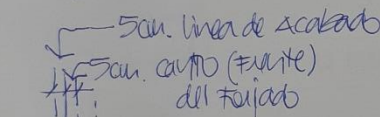 5cm. linea de Acabado
5cm. canto (Frente)
del Forjado